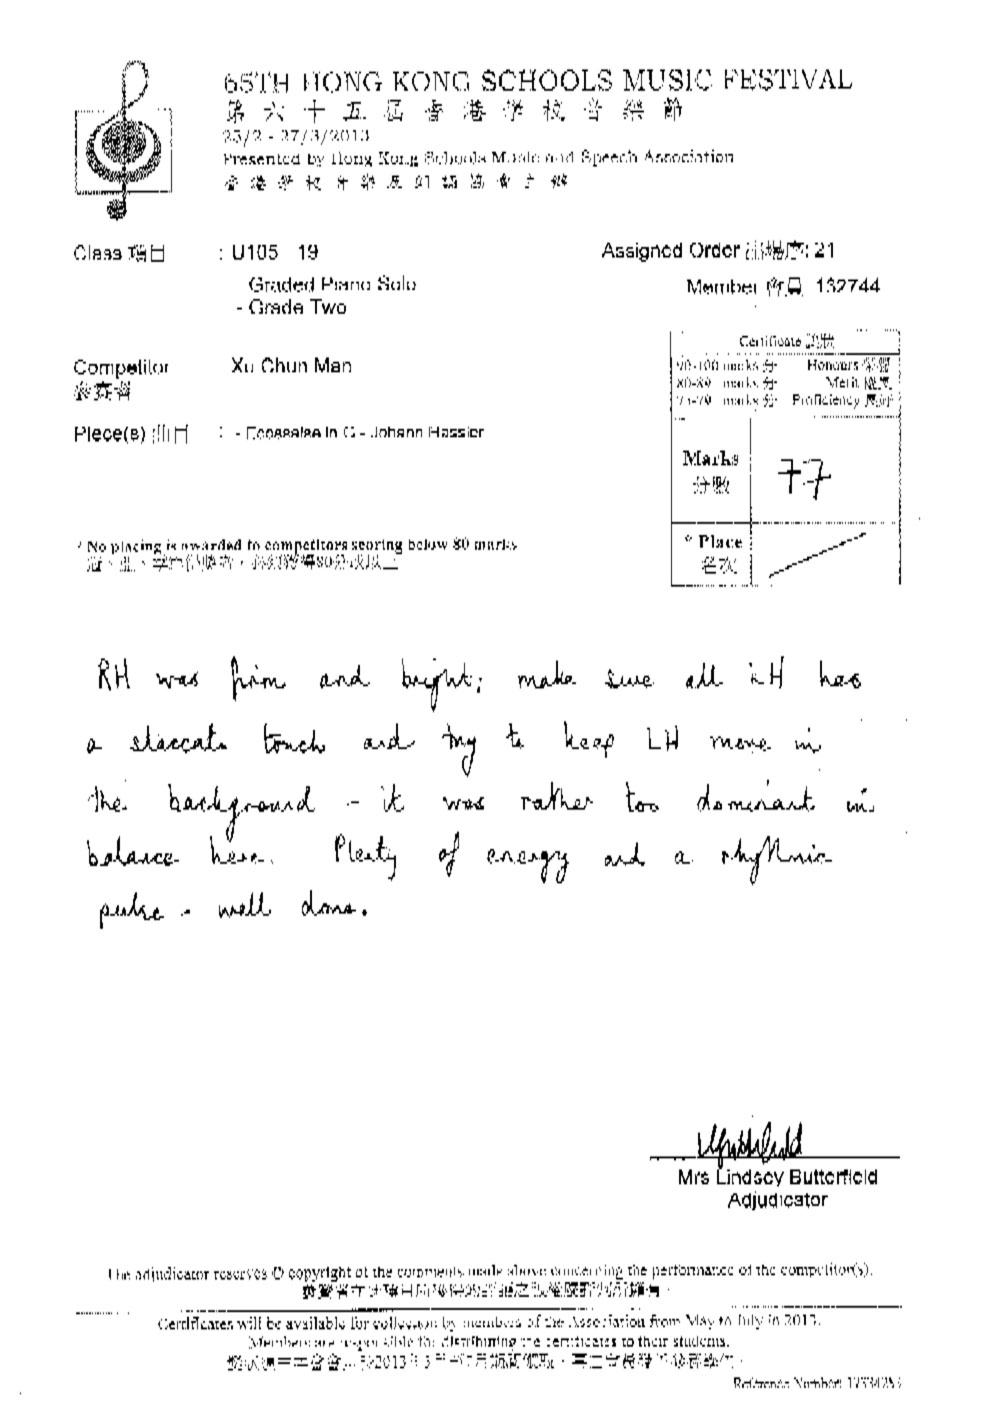 65TH HONG KONG SCHOOLS MUSIC FESTIVAL
第六十五屆香港學校音樂節
25/2 - 27/3/2013
Presented by Hong Kong Schools Music and Speech Association
香港學校音樂及朗誦協會主辦
Class 項目 : U105 19
Assigned Order 出場序: 21
Graded Piano Solo
- Grade Two
Member 會員 132744
Certificate 證狀
90-100 marks 分 Honours 榮譽
80-89 marks 分 Merit 優良
75-79 marks 分 Proficiency 良好
Competitor Xu Chun Man
參賽者
Piece(s) 曲目 : - Ecossaise in G - Johann Hassler
Marks 77
分數
* Place
名次
* No placing is awarded to competitors scoring below 80 marks
RH was firm and bright; make sure all LH has
a staccato touch and try to keep LH more in
the background - it was rather too dominant in
balance here. Plenty of energy and a rhythmic
pulse - well done.
Mrs Lindsey Butterfield
Adjudicator
The adjudicator reserves © copyright of the comments made above concerning the performance of the competitor(s).
Certificates will be available for collection by members of the Association from May to July in 2013.
Members are responsible for distributing the certificates to their students.
Reference Number: